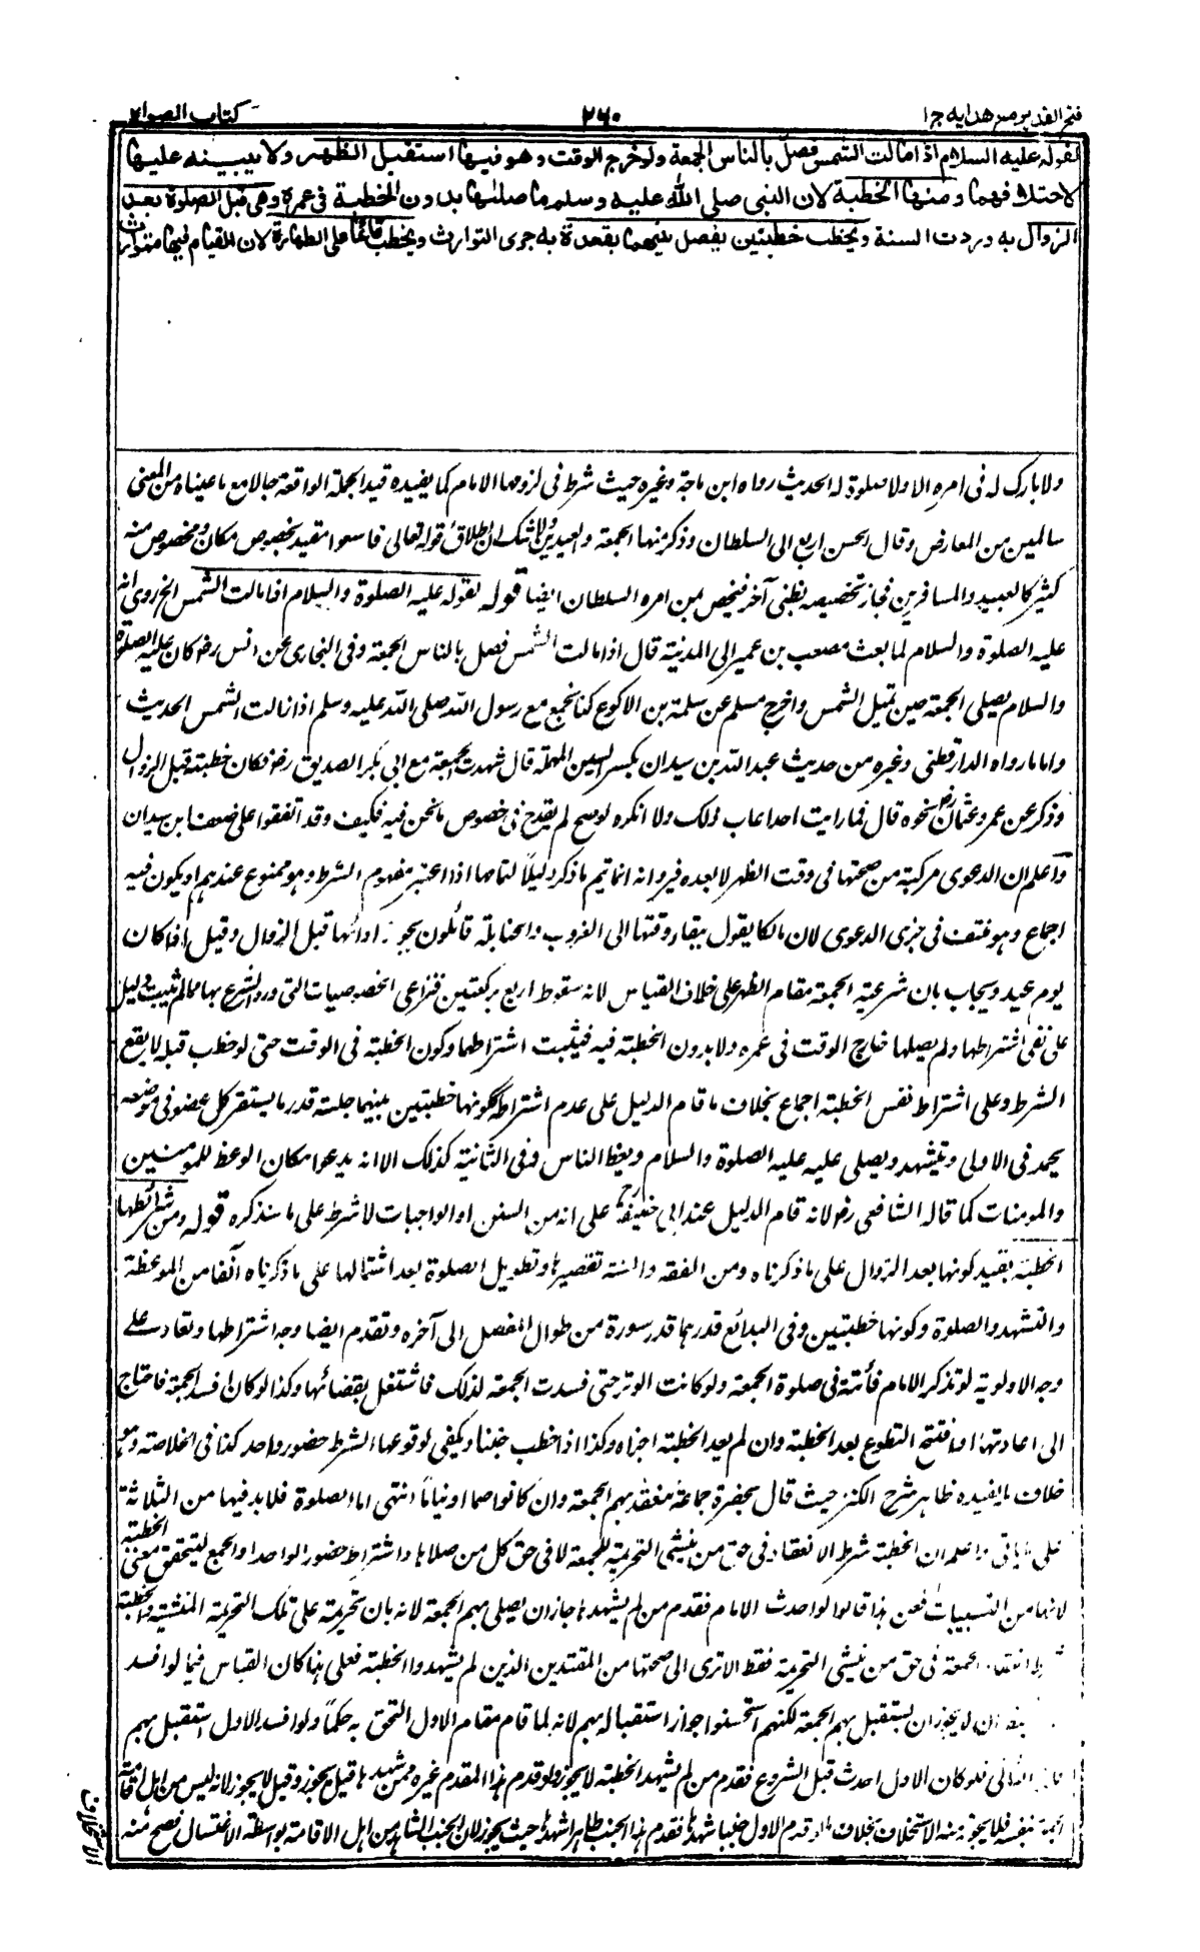 فتح القدير مع هدايه ج ١
٢٦٠
كتاب الصلوة
لقوله عليه السلام اذا مالت الشمس فصل بالناس الجمعة ولو خرج الوقت وهو فيها استقبل الظهر ولا يبنيه عليها
لاختلافهما ومنها الخطبة لان النبي صلى الله عليه وسلم ما صلٰها بدون الخطبة في عمره وهي قبل الصلوة بعد
الزوال به وردت السنة ويخطب خطبتين يفصل بينهما بقعدة به جرى التوارث ويخطب قائما على الطهارة لان القيام فيها متوارث
ولا بارك له في امره الا ولا صلوة له الحديث رواه ابن ماجة وغيره حيث شرط في لزومها الامام كما يفيده قيد الجملة الواقعة حالا مع ما عيناه من المعنى
سالمين من المعارض وقال الحسن اربع الى السلطان وذكر منها الجمعة والعيدين ولا شك ان اطلاق قوله تعالى فاسعوا مقيد بخصوص مكان ومخصوص منه
كثير كالعبيد والمسافرين فجاز تخصيصه بظني آخر فيخص بمن امره السلطان ايضا قوله لقوله عليه الصلوة والسلام اذا مالت الشمس الخ روى انه
عليه الصلوة والسلام لما بعث مصعب بن عمير الى المدينة قال اذا مالت الشمس فصل بالناس الجمعة وفي البخاري عن انس رضـ كان عليه الصلوة
والسلام يصلي الجمعة حين تميل الشمس واخرج مسلم عن سلمة بن الاكوع كنا نجمع مع رسول الله صلى الله عليه وسلم اذا زالت الشمس الحديث
واما ما رواه الدارقطني وغيره من حديث عبد الله بن سيدان بكسر السين المهملة قال شهدت الجمعة مع ابي بكر الصديق رضـ فكان خطبته قبل الزوال
وذكر عن عمر وعثمان رضـ نحوه قال فما رايت احدا عاب ذلك ولا انكره لو صح لم يقدح في خصوص ما نحن فيه فكيف وقد اتفقوا على ضعف ابن سيدان
واعلم ان الدعوى مركبة من صحتها في وقت الظهر لا بعده فيرد انه انما يتم ما ذكر دليلا لتمامها اذا اعتبر مفهوم الشرط وهو ممنوع عندهم او يكون فيه
اجماع وهو منتف في جزئي الدعوى لان مالكا يقول ببقاء وقتها الى الغروب والحنابلة قائلون بجواز ادائها قبل الزوال وقيل اذا كان
يوم عيد ويجاب بان شرعية الجمعة مقام الظهر على خلاف القياس لانه سقوط اربع بركعتين فتراعى الخصوصيات التي ورد الشرع بها ما لم يثبت دليل
على نفي اشتراطها ولم يصلها خارج الوقت في عمره ولا بدون الخطبة فيه فيثبت اشتراطهما وكون الخطبة في الوقت حتى لو خطب قبله لا يقع
الشرط وعلى اشتراط نفس الخطبة اجماع بخلاف ما قام الدليل على عدم اشتراطه ككونها خطبتين بينهما جلسة قدر ما يستقر كل عضو في موضعه
يحمد في الاولى ويتشهد ويصلي عليه عليه الصلوة والسلام ويعظ الناس وفي الثانية كذلك الا انه يدعو مكان الوعظ للمومنين
والمومنات كما قاله الشافعي رضـ لانه قام الدليل عند ابي حنيفة رح على انه من السنن او الواجبات لا شرط على ما سنذكره قوله ومن شرائطها
الخطبة بقيد كونها بعد الزوال على ما ذكرناه ومن الفقه والسنة تقصيرها وتطويل الصلوة بعد اشتمالها على ما ذكرناه آنفا من الموعظة
والتشهد والصلوة وكونها خطبتين وفي البدائع قدرهما قدر سورة من طوال المفصل الى آخره وتقدم ايضا وجه اشتراطها وتعاد على
وجه الاولوية لو تذكر الامام فائتة في صلوة الجمعة ولو كانت الوتر حتى فسدت الجمعة لذلك فاشتغل بقضائها وكذا لو كان افسد الجمعة فاحتاج
الى اعادتها او افتتح التطوع بعد الخطبة وان لم يعد الخطبة اجزاه وكذا اذا خطب جنبا ويكفي لوقوعها الشرط حضور واحد كذا في الخلاصة وهو
خلاف ما يفيده ظاهر شرح الكنز حيث قال بحضرة جماعة منعقد بهم الجمعة وان كانوا صما او نياما انتهى اما الصلوة فلا بد فيها من الثلاثة
على ما ياتي واعلم ان الخطبة شرط الانعقاد في حق من ينشئ التحريمة للجمعة لا في حق كل من صلاها واشتراط حضور الواحد او الجمع ليتحقق معنى الخطبة
لانها من النسبيات فعن هذا قالوا لو احدث الامام فقدم من لم يشهدها جاز ان يصلي بهم الجمعة لانه بان تحريمته على تلك التحريمة المنشئة والخطبة
شرط انعقاد الجمعة في حق من ينشئ التحريمة فقط الا ترى الى صحتها من المقتدين الذين لم يشهدوا الخطبة فعلى هذا كان القياس فيما لو افسد
ان لا يجوز ان يستقبل بهم الجمعة لكنهم استحسنوا جواز استقباله بهم لانه لما قام مقام الاول التحق به حكما ولو افسد الاول استقبل بهم
الثاني فلو كان الاول احدث قبل الشروع فقدم من لم يشهد الخطبة لا يجوز ولو قدم هذا المقدم غيره ممن شهدها قيل يجوز وقيل لا يجوز لانه ليس من اهل اقامة
الجمعة بنفسه فلا يجوز منه الاستخلاف بخلاف ما لو قدم الاول جنبا شهدها فقدم هذا الجنب طاهرا شهدها حيث يجوز لان الجنب الشاهد من اهل الاقامة بواسطة الاغتسال فصح منه
الاستخلاف